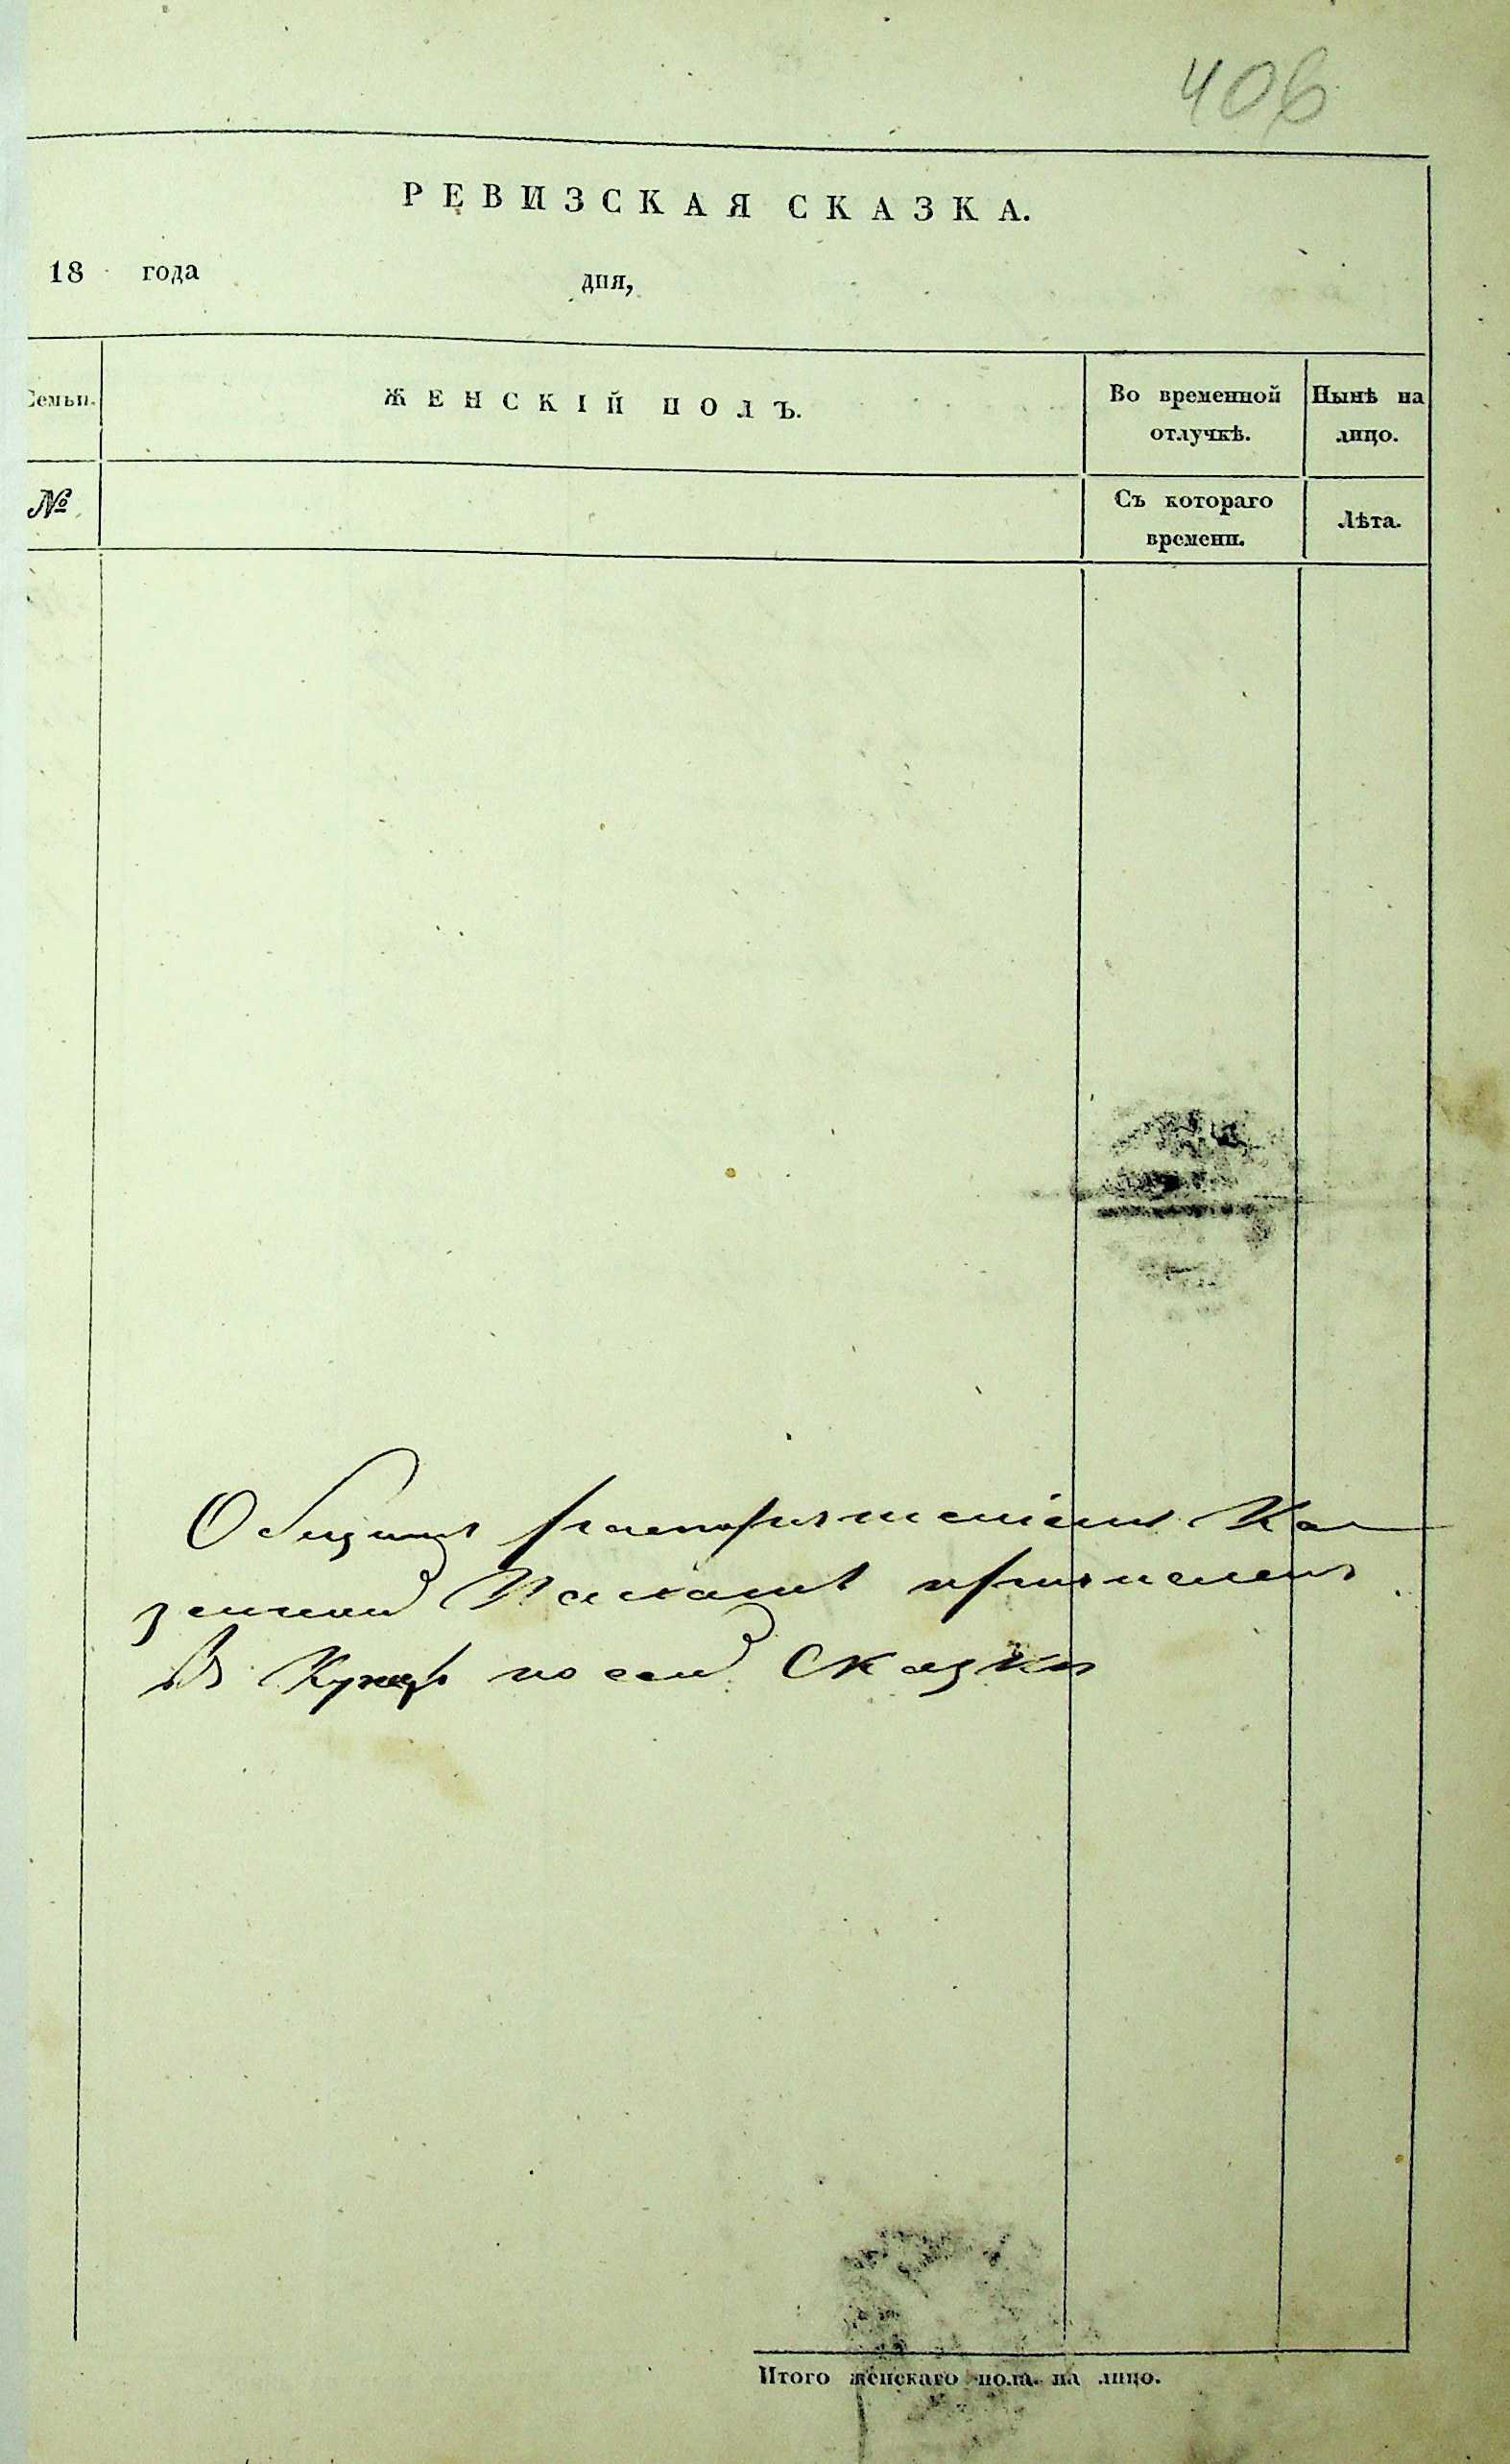 406
РЕВИЗСКАЯ СКАЗКА.
18 года дня,
Семьи. ЖЕНСКІЙ ПОЛЪ. Во временной отлучкѣ. Нынѣ на лицо.
№ Съ котораго времени. Лѣта.
Общимъ Ка
зенной Палаты
В по сей Сказки
Итого женскаго пола на лицо.